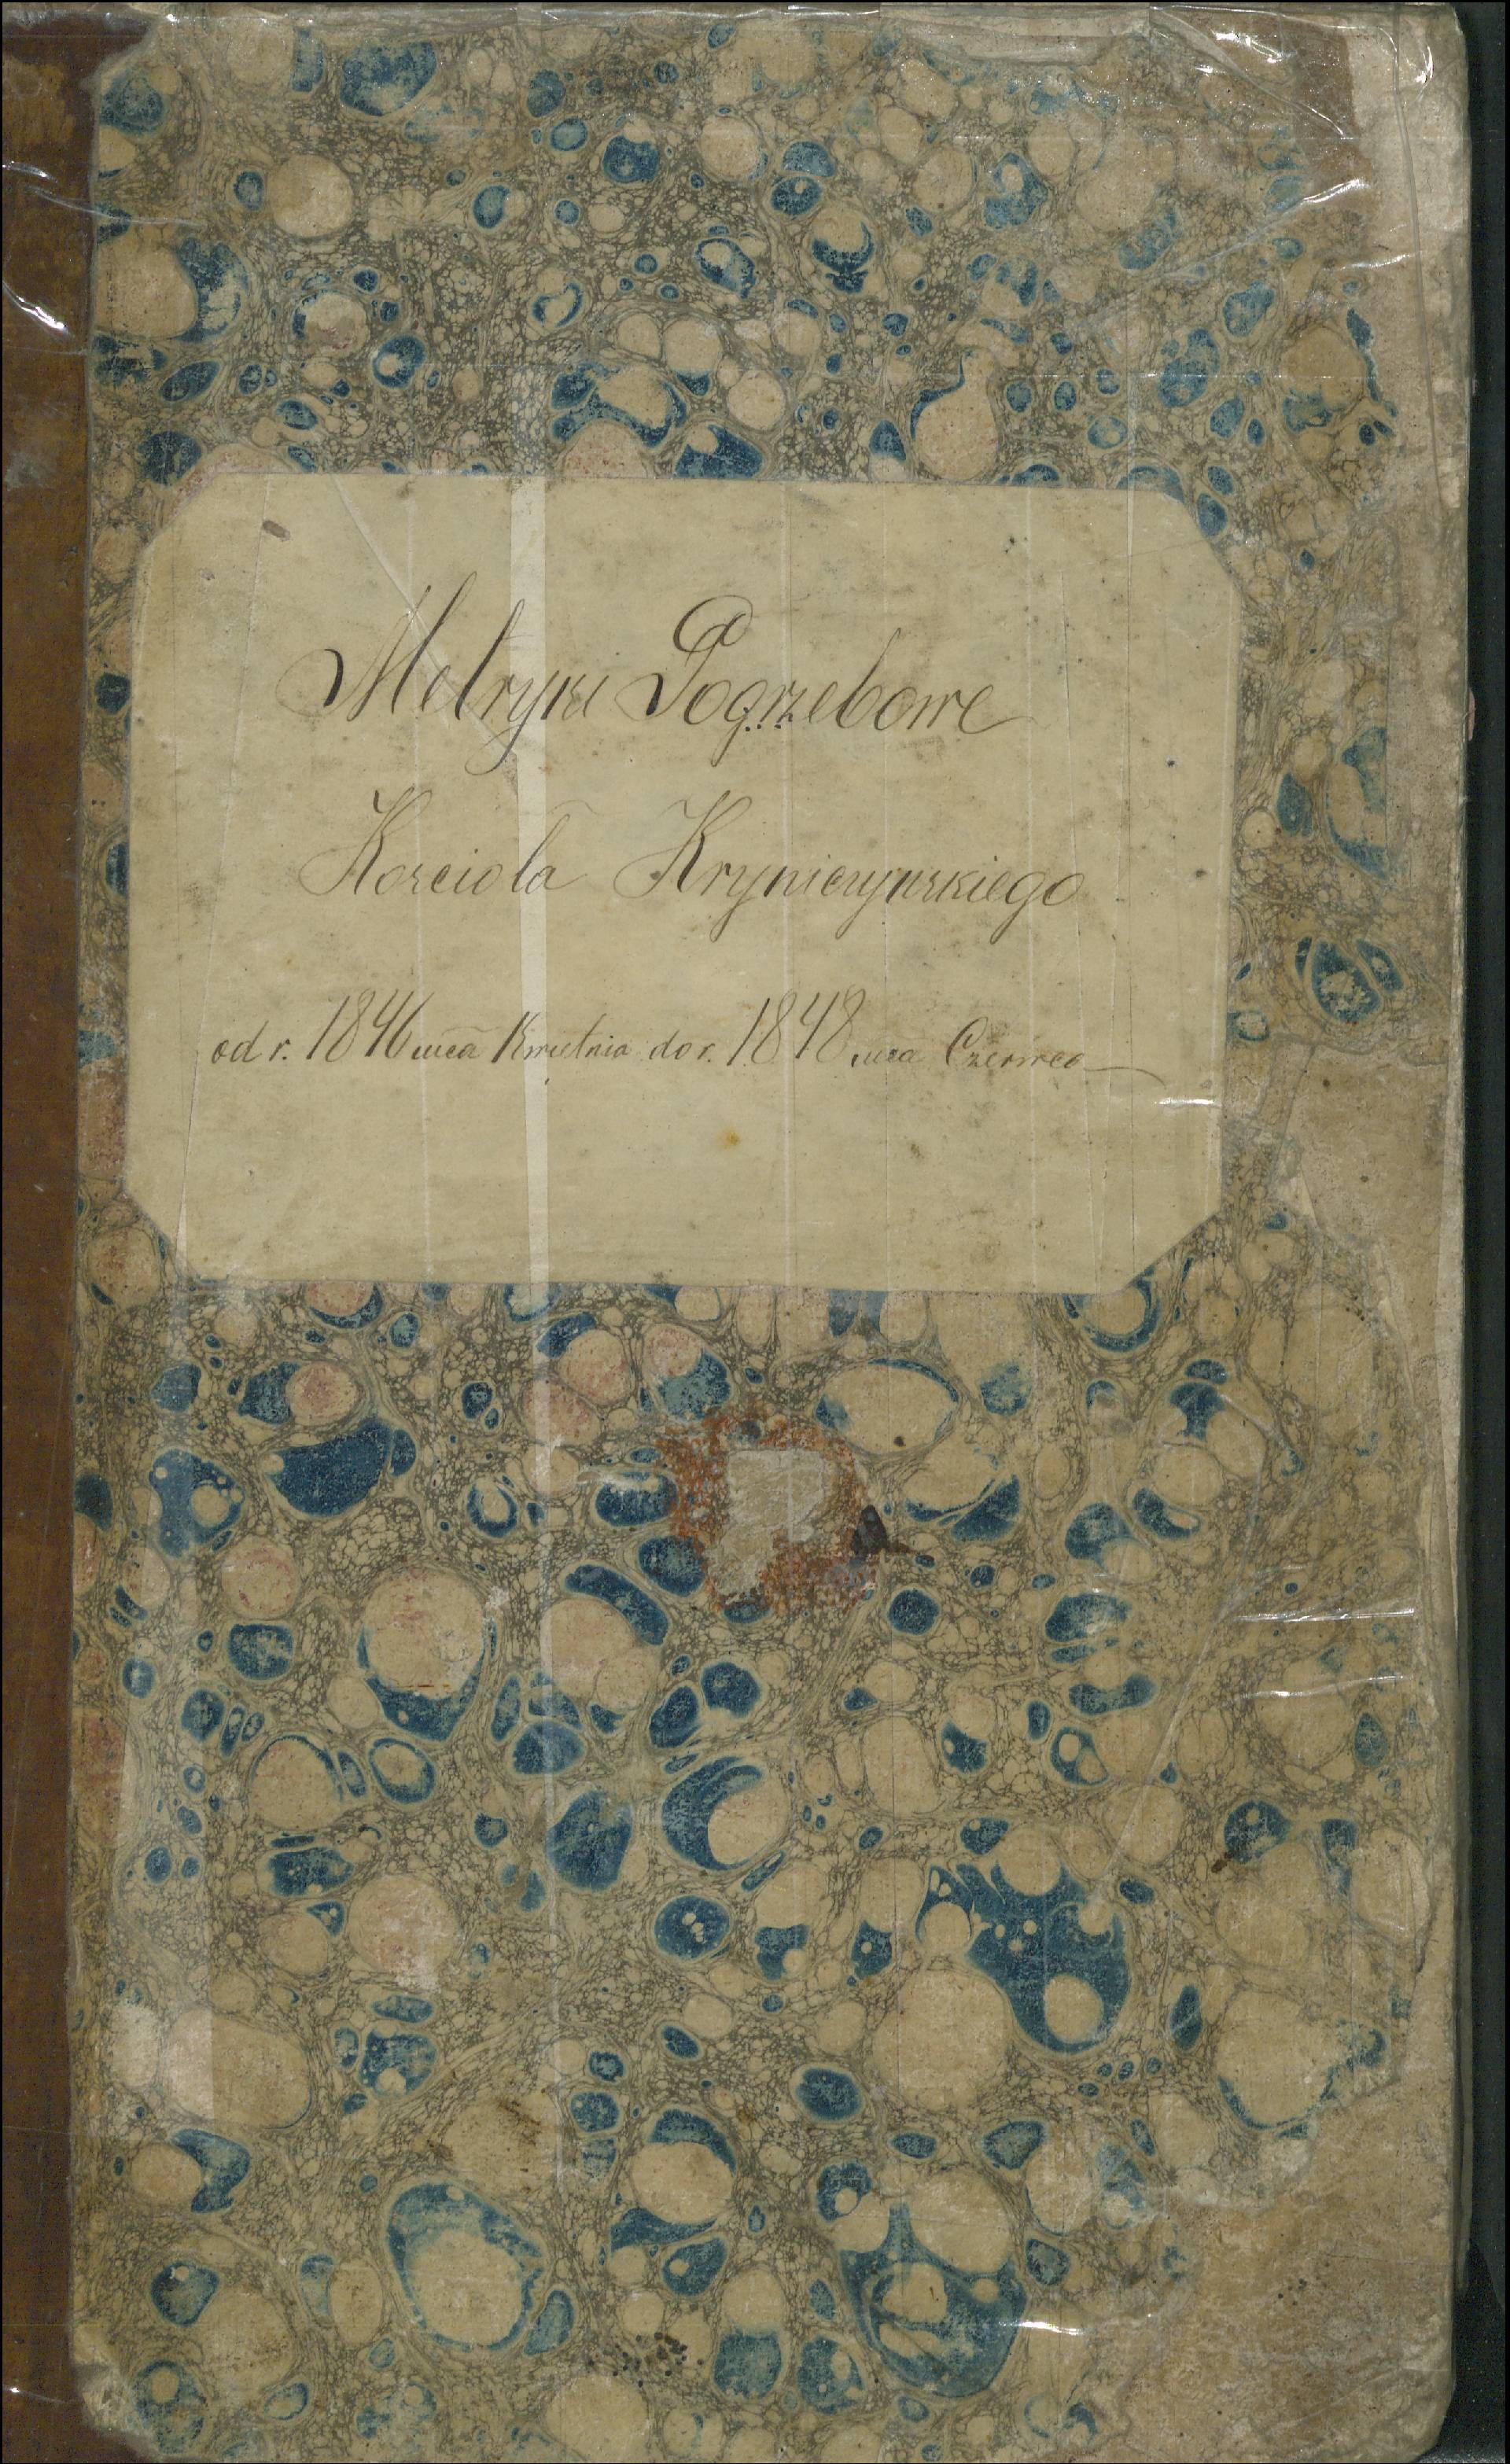 Metryki Pogrzebowe
Kosciola Kryniczynskiego
od r. 1846 mca Kwietnia do r. 1848 mca Czerwca